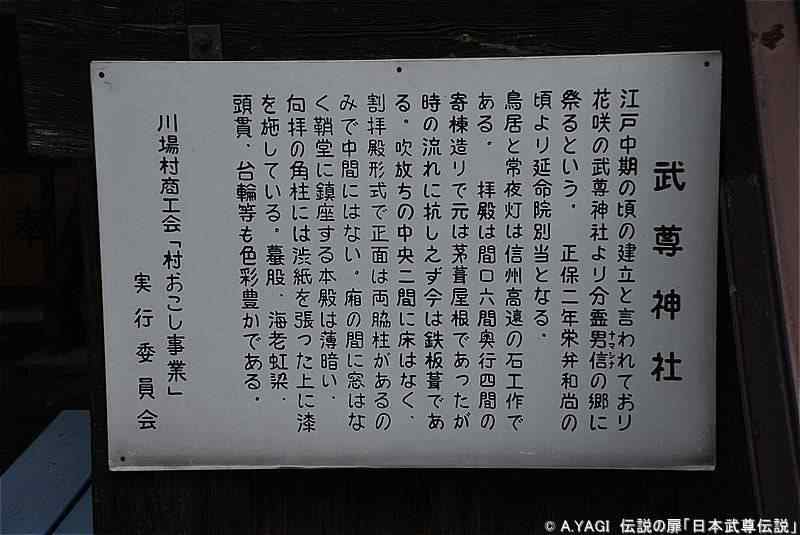 武尊神社
江戸中期の頃の建立と言われており
花咲の武尊神社より分霊男信の郷に
ナマシナ
祭るという。 正保二年栄弁和尚の
頃より延命院別当となる.
鳥居と常夜灯は信州高遠の石工作で
ある。 拝殿は間口六間奥行四間の
寄棟造りで元は茅葺屋根であったが
時の流れに抗しえず今は鉄板葺であ
る。吹放ちの中央二間に床はなく.
割拝殿形式で正面は両脇柱があるの
みで中間にはない。廂の間に窓はな
く鞘堂に鎮座する本殿は薄暗い.
向拝の角柱には渋紙を張った上に漆
を施している。蟇股.海老虹梁.
頭貫.台輪等も色彩豊かである。
川場村商工会「村おこし事業」
実行委員会
© A.YAGI 伝説の扉「日本武尊伝説」